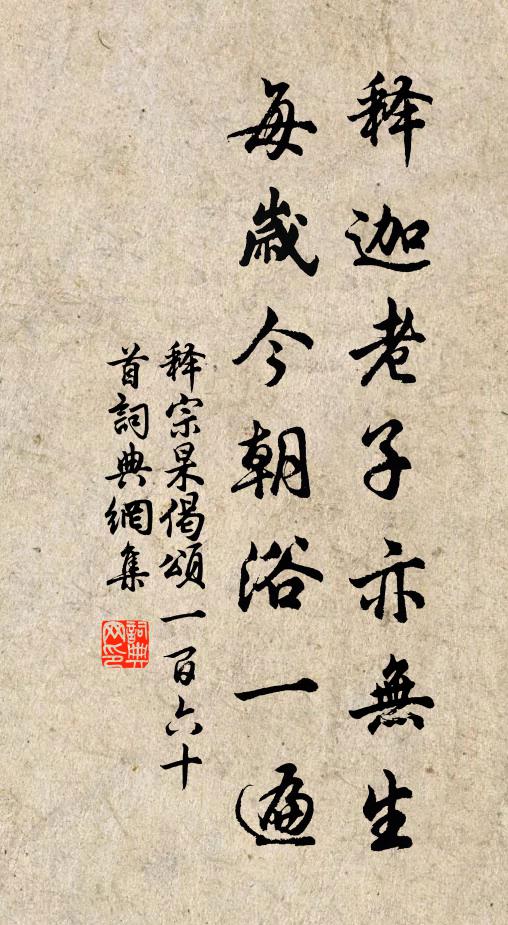 释迦老子亦無生
每歲今朝浴一遍
释宗杲偈頌一百六十
首詞典網集
詞典网印